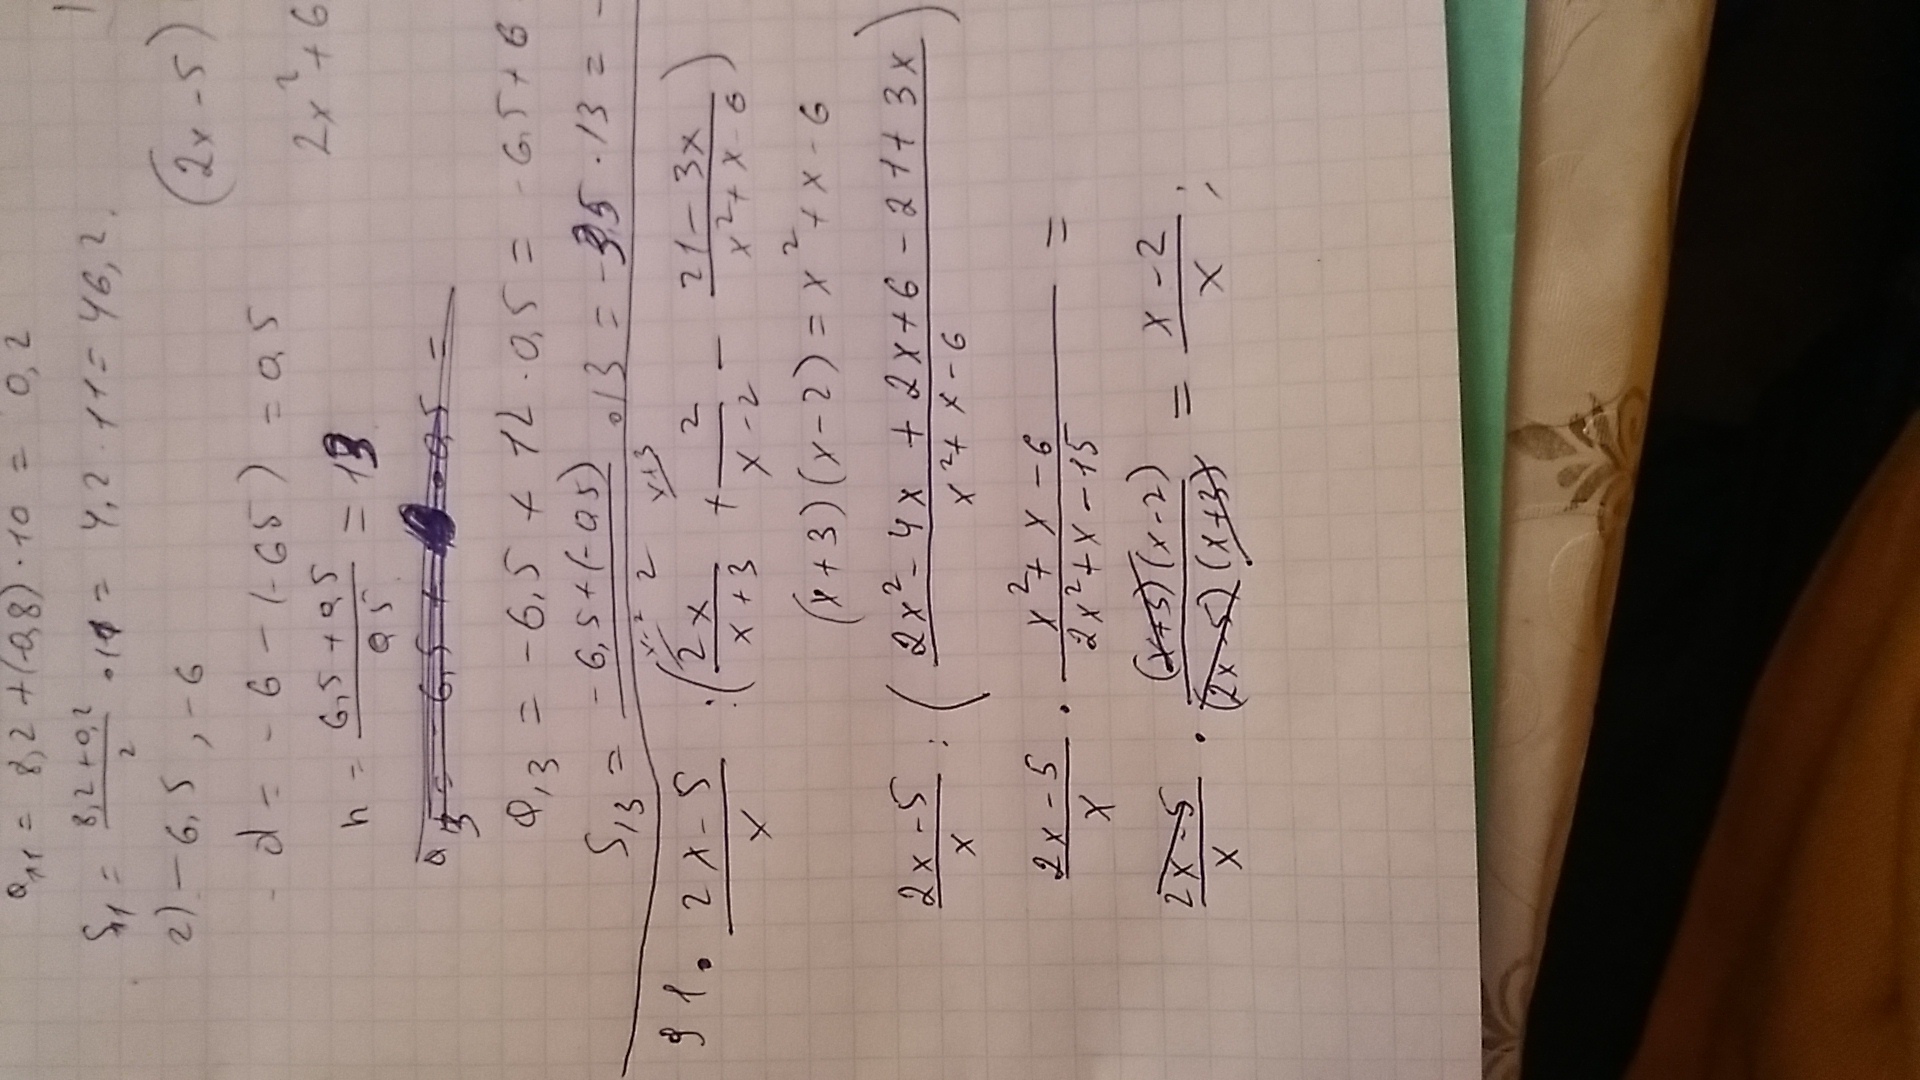 a₁₁ = 8,2 + (-0,8) · 10 = 0,2
S₁₁ = (8,2 + 0,2)/2 · 11 = 4,2 · 11 = 46,2.
2) -6,5, -6
(2x - 5)
d = -6 - (-6,5) = 0,5
2x² + 6
n = (6,5 + 0,5)/0,5 = 13
a₁₃ = -6,5 + 12 · 0,5 = -6,5 + 6
S₁₃ = (-6,5 + (-0,5))/2 · 13 = -3,5 · 13 = -
91. (2x - 5)/x : (2x/(x + 3) + 2/(x - 2) - (21 - 3x)/(x² + x - 6))
(x + 3)(x - 2) = x² + x - 6
(2x - 5)/x : ((2x² - 4x + 2x + 6 - 21 + 3x)/(x² + x - 6))
(2x - 5)/x · (x² + x - 6)/(2x² + x - 15) =
(2x - 5)/x · (x + 3)(x - 2)/((2x - 5)(x + 3)) = (x - 2)/x ;